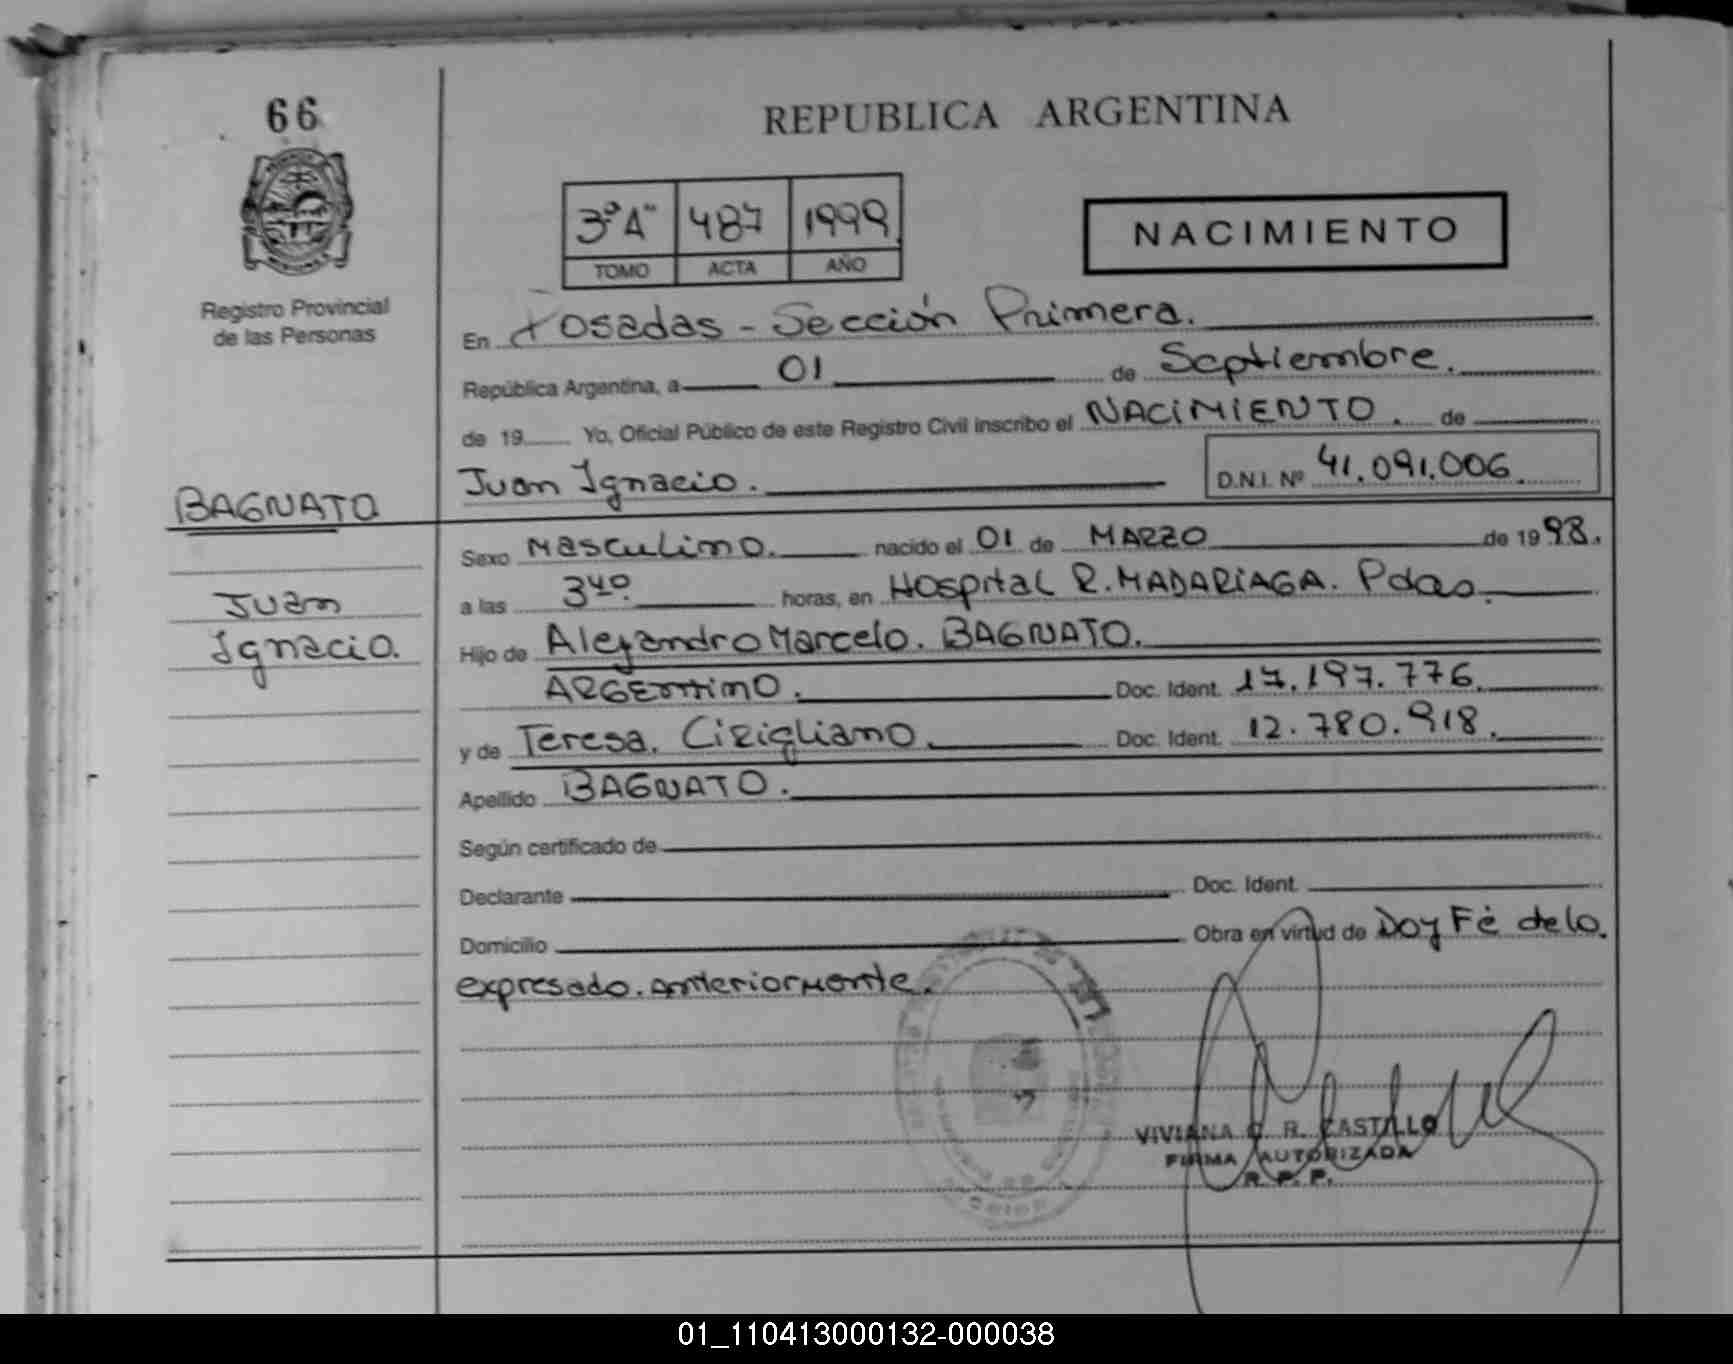 66
REPUBLICA ARGENTINA
3º"A" 487 1999
TOMO ACTA AÑO
NACIMIENTO
Registro Provincial
de las Personas
En Posadas - Sección Primera.
República Argentina, a 01 de Septiembre.
de 19 Yo, Oficial Público de este Registro Civil inscribo el NACIMIENTO. de
Juan Ignacio. D.N.I. Nº 41.091.006
BAGNATO
Juan
Ignacio.
Sexo Masculino. nacido el 01 de MARZO de 1998.
a las 3 40. horas, en Hospital R. MADARIAGA. Pdas.
Hijo de Alejandro Marcelo. BAGNATO.
ARGENTINO. Doc. Ident. 17.197.776.
y de Teresa. Cirigliano. Doc. Ident. 12.780.918.
Apellido BAGNATO.
Según certificado de
Declarante Doc. Ident.
Domicilio Obra en virtud de Doy Fé de lo.
expresado. anteriormente.
VIVIANA R. CASTILLO
FIRMA AUTORIZADA
R. P. P.
01_110413000132-000038